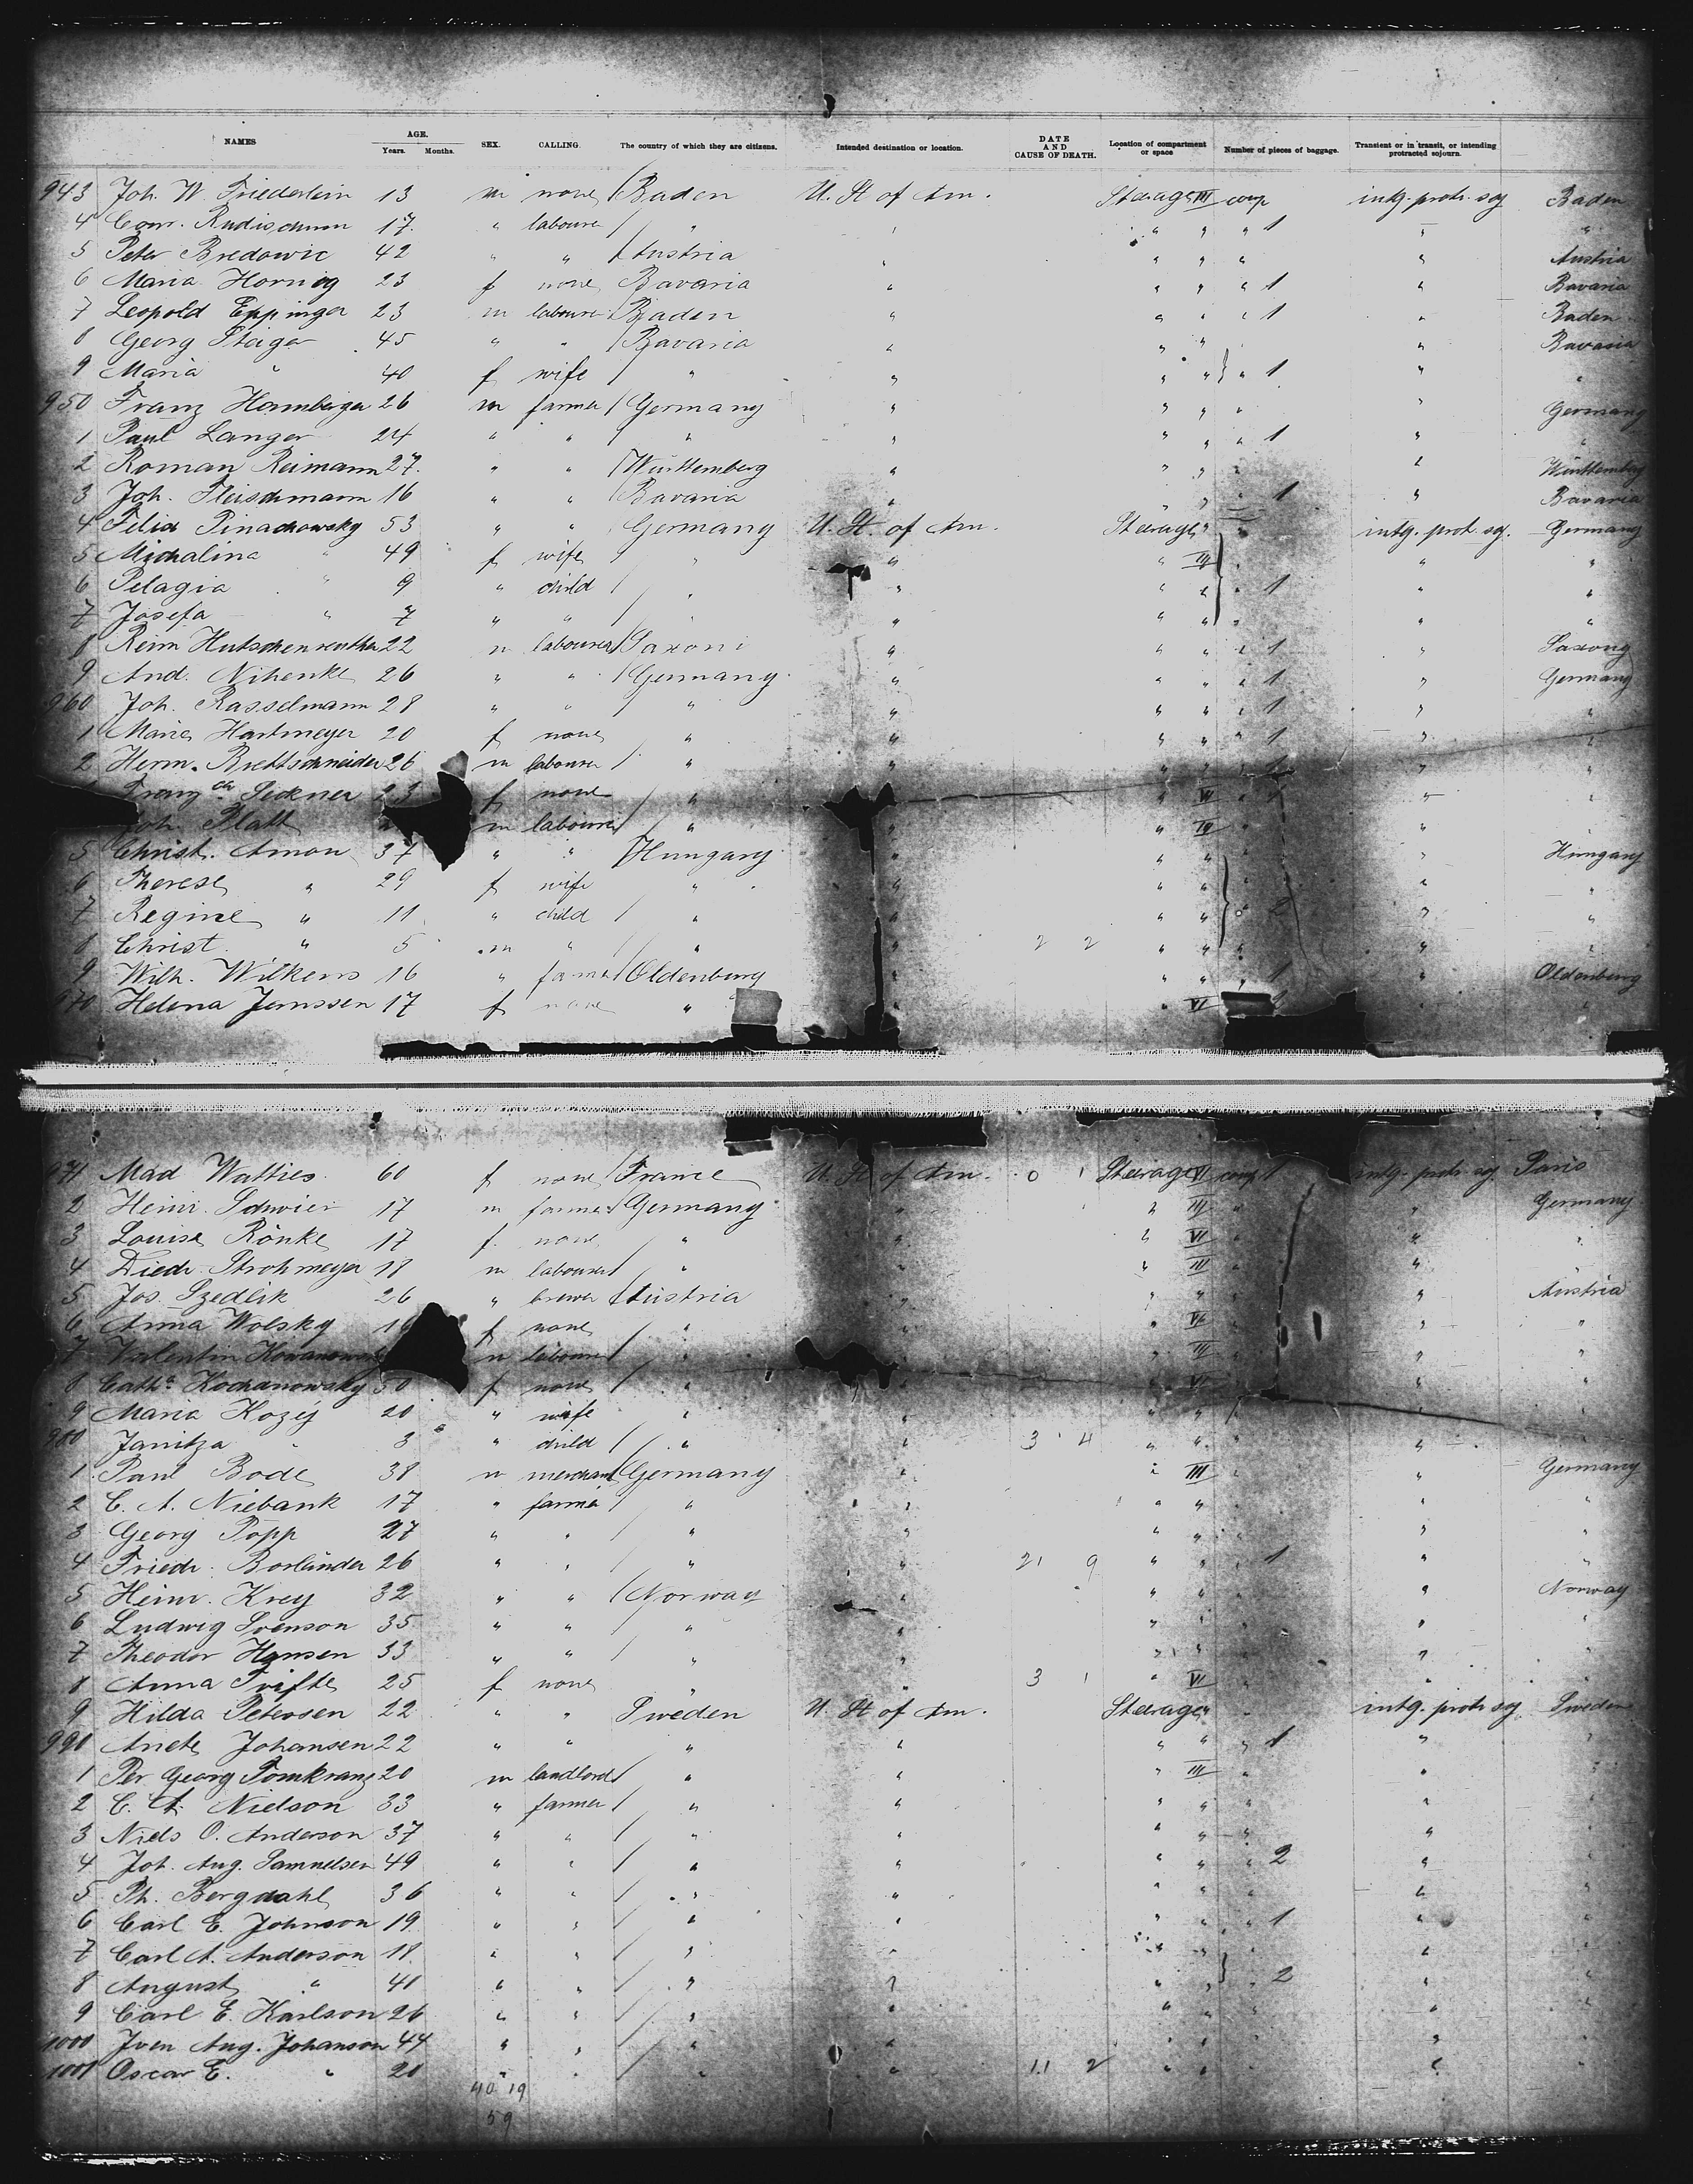 NAMES AGE. Years. Months. SEX. CALLING. The country of which they are citizens. Intended destination or location. DATE AND CAUSE OF DEATH. Location of compartment or space Number of pieces of baggage. Transient or in transit, or intending protracted sojourn.
943 Joh. W. Friederlein 13 m none Baden U. St of Am. Steerage III comp intg. protr. soj Baden
4 17 " labourer " " " " " 1 " "
5 Peter Bredowic 42 " " Austria " " " " " Austria
6 Maria Hornig 23 f none Bavaria " " " " 1 " Bavaria
7 Leopold Eppinger 23 m labourer Baden " " " " 1 " Baden
8 Georg Staiger 45 " " Bavaria " " " " Bavaria
9 Maria " 40 f wife " " " " " 1 " "
950 Franz Hornberger 26 m farmer Germany " " " " " Germany
1 Paul Langer 24 " " " " " " " 1 " "
2 Roman Reimann 27 " " Württemberg " " " " " Württemberg
3 Joh. Fleischmann 16 " " Bavaria " " " " 1 " Bavaria
4 Felix Pinachowsky 53 " " Germany U. St. of Am. Steerage " " intg. protr. soj. Germany
5 Michalina " 49 f wife " " " III " " "
6 Pelagia " 9 " child " " " " 1 " "
7 Josefa " 7 " " " " " " " " "
8 Hutschenreuther 22 m labourer Saxoni " " " " 1 " Saxony
9 And. Nihenke 26 " " Germany " " " " 1 " Germany
960 Joh. Rasselmann 28 " " " " " " " 1 " "
1 Marie Hartmeyer 20 f none " " " " " 1 " "
2 Herm. Brettschneider 26 m labourer " " " " " 1 " "
Seckner 23 f none " " VI " 1 " "
Joh. Platt m labourer " " " III " "
5 Christ. Amon 37 " " Hungary " " " " " Hungary
6 Therese " 29 f wife " " " " " " "
7 Regine " 11 " child " " " " " 2 " "
8 Christ " 5 m " " " 2 2 " " " " "
9 Wilh. Wilkens 16 " farmer Oldenburg " " " " 1 " Oldenburg
970 Helena Janssen 17 f none " " " VI " "
971 Mad Watties 60 f none France U. St of Am. 0 1 Steerage VI comp 1 intg. protr. soj Paris
2 Heinr. Schwier 17 m farmer Germany " " III " " Germany
3 Louise Rönke 17 f none " " " VI " " "
4 Diedr. Strohmeyer 18 m labourer " " " III " " "
5 Jos. Szedlik 26 " brewer Austria " " " " " Austria
6 Anna Wolsky f none " " " VI " " "
7 Valentin m labourer " " III " " "
8 Cath.a Kochanowsky 50 f none " " " VI " "
9 Maria Kozéj 20 " wife " " " " " "
980 Janitza " 3 " child " " 3 4 " " " " "
1 Paul Bode 38 m merchant Germany " " III " " Germany
2 C. A. Niebank 17 " farmer " " " " " " "
3 Georg Popp 27 " " " " " " " " "
4 Friedr. Borländer 26 " " " " 21 9 " " 1 " "
5 Heinr. Krey 32 " " Norway " " " " " Norway
6 Ludwig Svenson 35 " " " " " " " " "
7 Theodor Hansen 33 " " " " " " " "
8 Anna 25 f none " " 3 1 " VI " "
9 Hilda Petersen 22 " " Sweden U. St of Am. Steerage " " intg. protr. soj. Sweden
990 Johansen 22 " " " " " " " 1 " "
1 Per Georg 20 m landlord " " " III " " "
2 C. A. Nielson 33 " farmer " " " " " " "
3 Niels O. Anderson 37 " " " " " " " " "
4 Joh. Aug. Samuelsen 49 " " " " " " " 2 " "
5 Ph. Bergdahl 36 " " " " " " " " "
6 Carl E. Johnson 19 " " " " " " " 1 " "
7 Carl A. Anderson 18 " " " " " " " " "
8 August " 41 " " " " " " " 2 " "
9 Carl E. Karlson 26 " " " " " " " "
1000 Sven Aug. Johanson 44 " " " " " " " "
1001 Oscar E. " 20 " " " " 11 2 " " " "
40 19
59